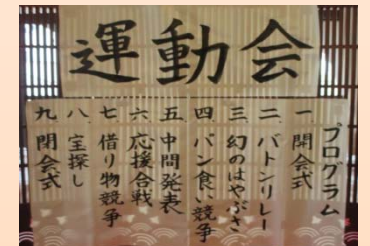 運動会
プログラム
一、開会式
二、バトンリレー
三、幻のはやぶさ
四、パン食い競争
五、中間発表
六、応援合戦
七、借り物競争
八、宝探し
九、閉会式